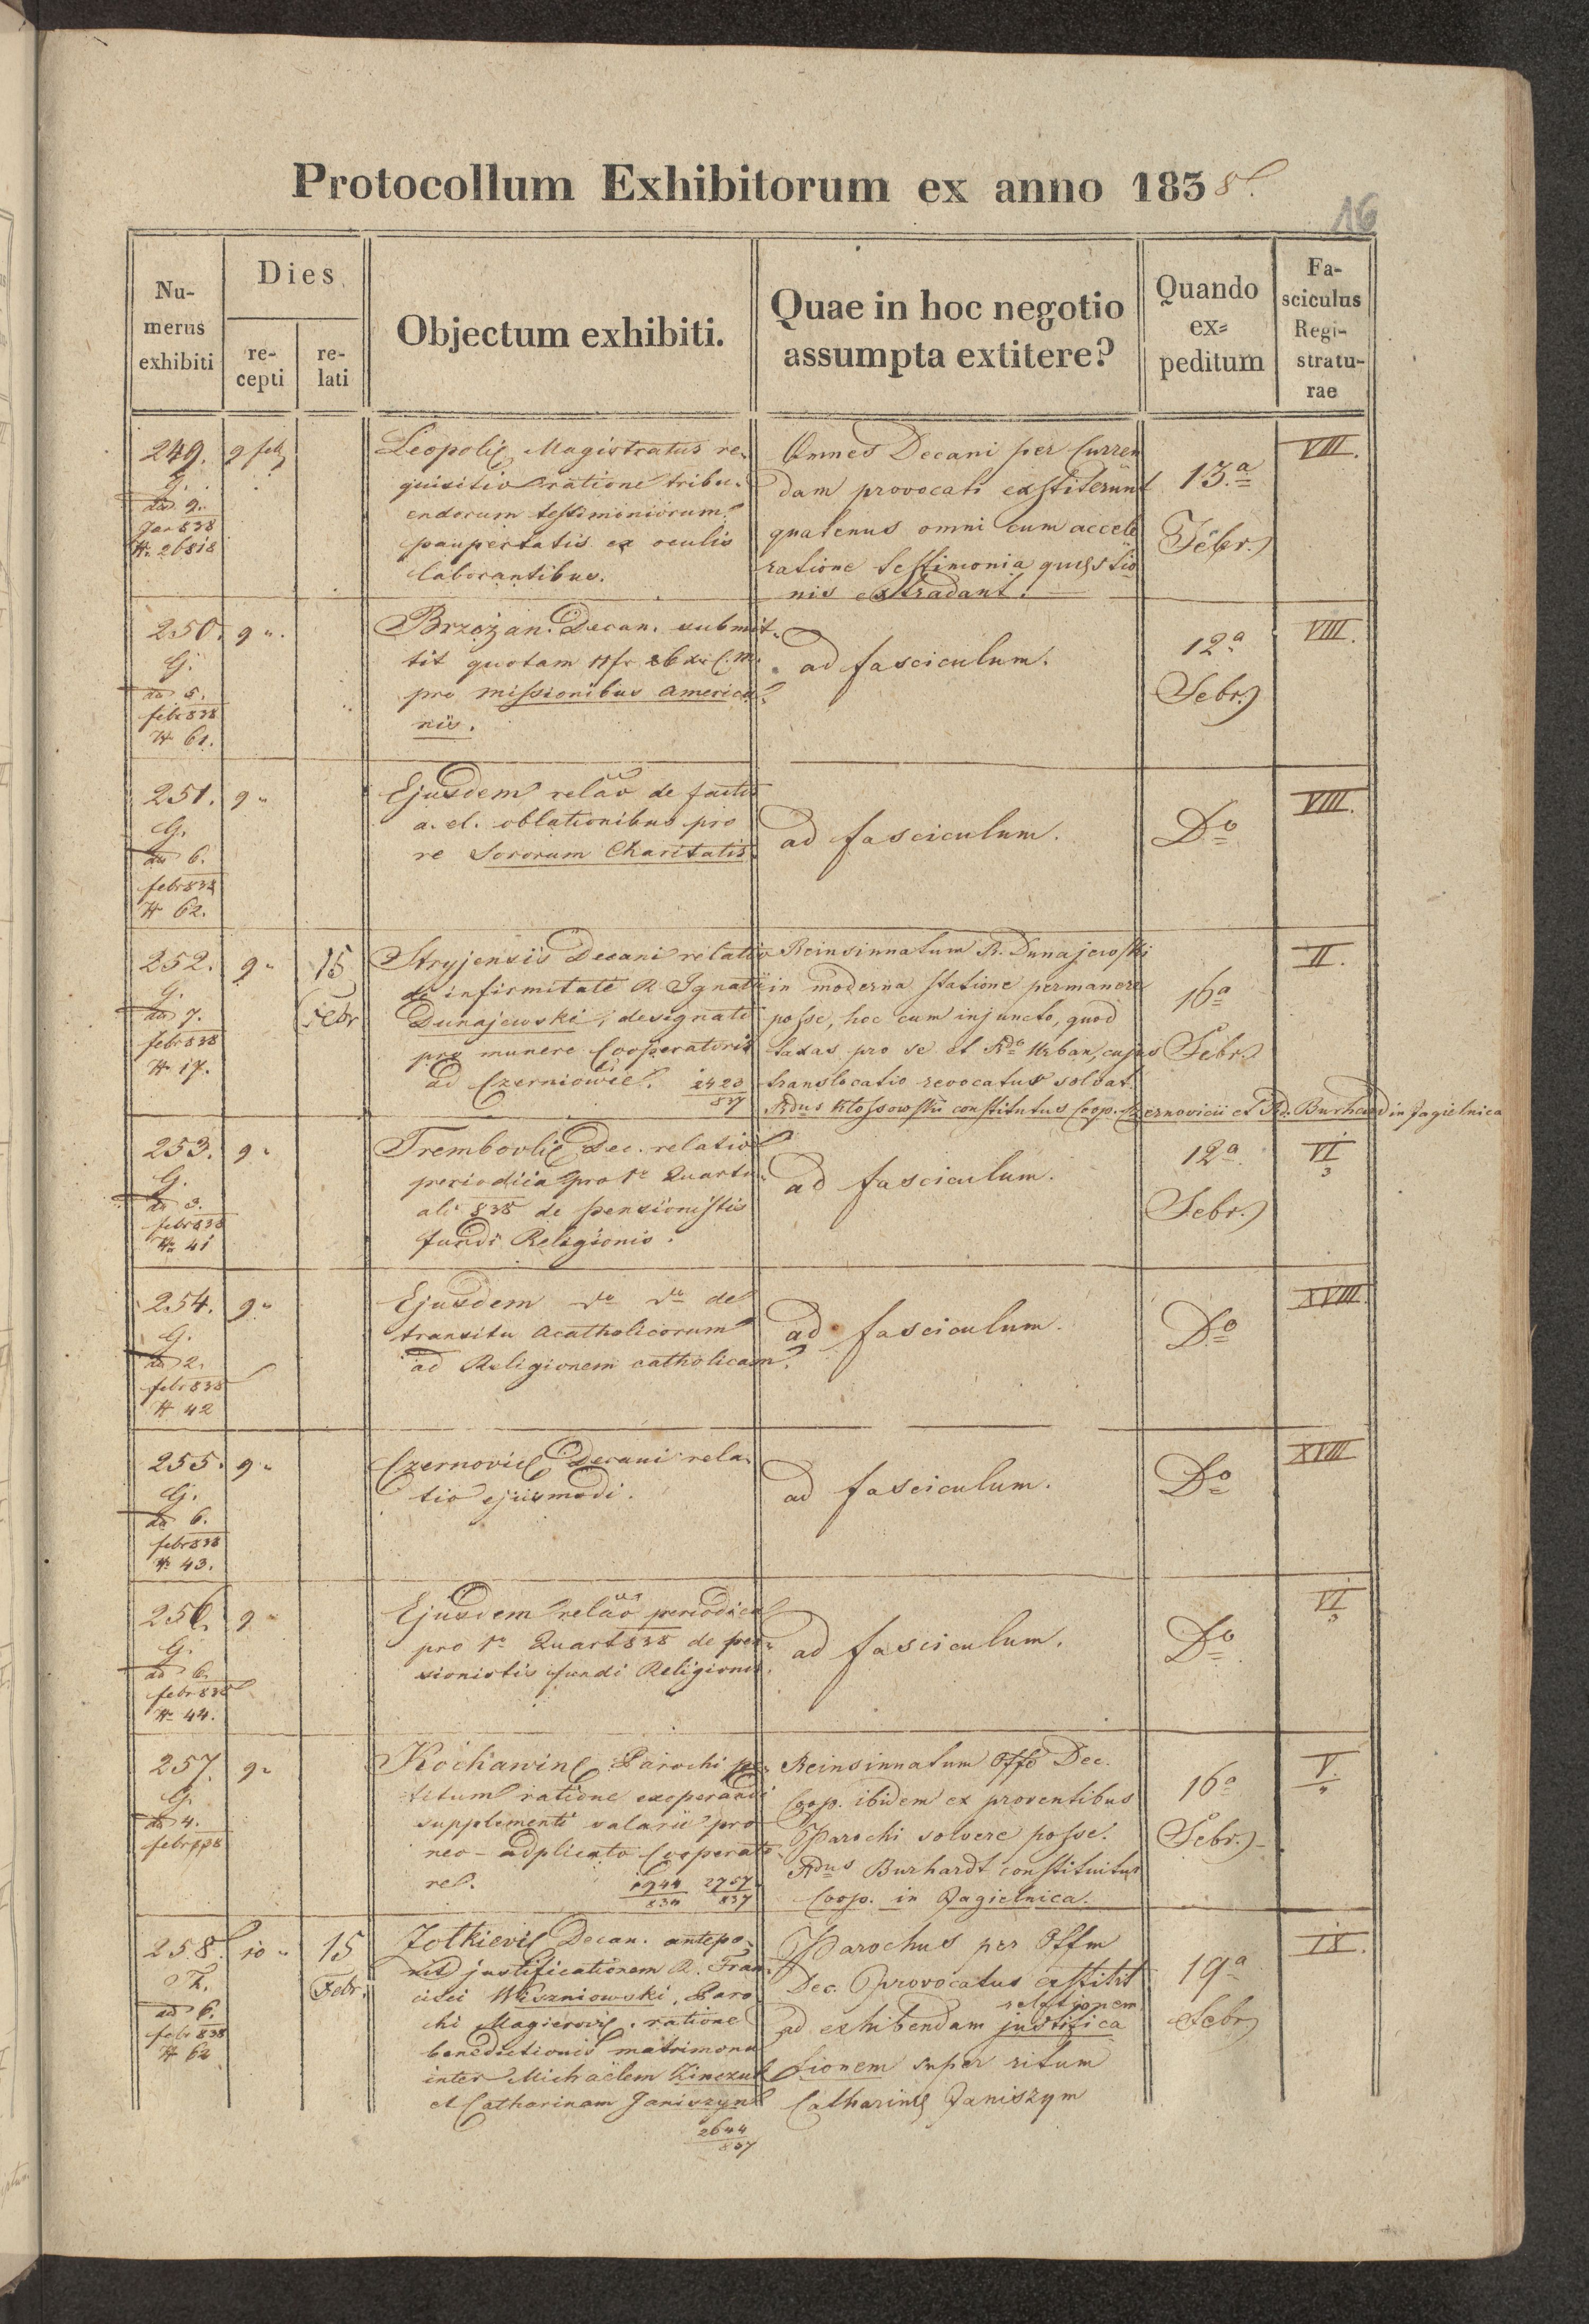 Protocollum Exhibitorum ex anno 1838.
16
Nu-
merus
exhibiti
Dies
re-
cepti
re-
lati
Objectum exhibiti.
Quae in hoc negotio
assumpta extitere?
Quando
ex=
peditum
Fa-
sciculus
Regi-
stratu-
rae
249.
G.
dd 9.
Jan 838
N. 26818
9 feb
Leopolię Magistratus re-
quisitio ratione tribu-
endorum testimoniorum
paupertatis ex oculis
laborantibus.
Omnes Decani per Curren
dam provocati exstiterunt
quatenus omni cum accele
ratione testimonia quęstio
nis extradant.
13.a
Febr.
VIII.
250.
G.
dd 5.
febr 838
N 61.
9 "
Brzozan. Decan. submit-
tit quotam 11 fr 26 xr C. M.
pro missionibus america
nis.
ad fasciculum.
12a
Febr.
VIII.
251.
G.
dd 6.
febr 838
N 62.
9 "
Ejusdem relāo de factis
a. el. oblationibus pro
re Sororum Charitatis.
ad fasciculum.
Do
VIII.
252.
G.
dd 7.
febr 838
N. 17.
9 "
15
Febr
Stryjensis Decani relatio
de infirmitate R Ignatii
Dunajewski, designati
pro munere Cooperatoris
ad Czerniowic. 2420
837
Reinsinnatum R. Dunajewski
in moderna statione permanere
posse, hoc cum injuncto, quod
taxas pro se et Rdo Urban, cujus
translocatio revocatur solvat.
Rdus Kłossowski constitutus Coop. Czernovicii et Rd. Burhard in Jagielnica
16a
Febr.
II.
253.
G.
dd 3.
febr 838
N. 41
9 "
Trembovlię Dec. relatio
periodica pro 1o Quartu-
ali 838 de pensionistis
fundi Religionis.
ad fasciculum.
12a
Febr.
VI
3
254.
G.
dd 2.
febr 838
N 42
9 "
Ejusdem do do de
transitu Acatholicorum
ad Religionem catholicam.
ad fasciculum.
Do
XVIII.
255.
G.
dd 6.
febr 838
N. 43.
9 "
Czernovic Decani rela-
tio ejusmodi.
ad fasciculum.
Do
XVIII
256.
G.
dd 6.
febr 838
N. 44.
9 "
Ejusdem relāo periodica
pro 1o Quart 838 de pen-
sionistis fundi Religionis.
ad fasciculum.
Do
VI
3
257.
G.
dd 4.
febr 838
9 "
Kochawinę Parochi pe-
titum ratione exoperandi
supplementi salarii pro
neo-adplicato Cooperato-
re. 1944 2757
834 837
Reinsinnatum Offo Dec.
Coop. ibidem ex proventibus
Parochi solvere posse.
Rdus Burhardt constituitur
Coop. in Jagielnica.
16a
Febr.
V.
258.
Th.
dd 6.
febr 838
N 62
10 "
15
Febr.
Zołkievię Decan. antepo-
nit justificationem R. Fran-
cisci Wiszniowski, Paro
chi Magierovię, ratione
benedictionis matrimonii
inter Michaëlem Kinczuk
et Catharinam Janiszyn
2644
837
Parochus per Offm
Dec. provocatus exstitit
relationem
ad exhibendam justifica
tionem super ritum
Catharinę Janiszyn
19a
Febr
IX.